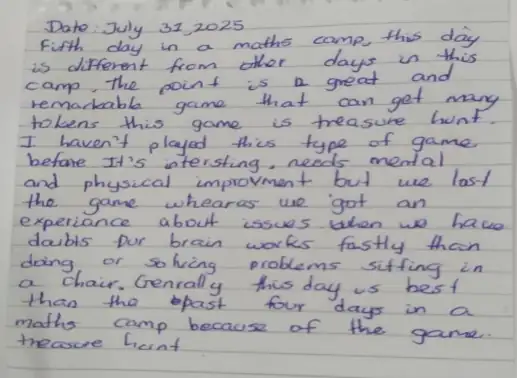 Date: July 31, 2025
Fifth day in a maths camp, this day
is different from other days in this
camp. The point is a great and
remarkable game that can get many
tokens this game is treasure hunt.
I haven't played this type of game
before It's intersting. needs mental
and physical improvment but we lost
the game whearas we got an
experiance about issues when we have
doubts Our brain works fastly than
doing or solving problems sitting in
a chair. Genrally this day is best
than the past four days in a
maths camp because of the game.
treasure hunt